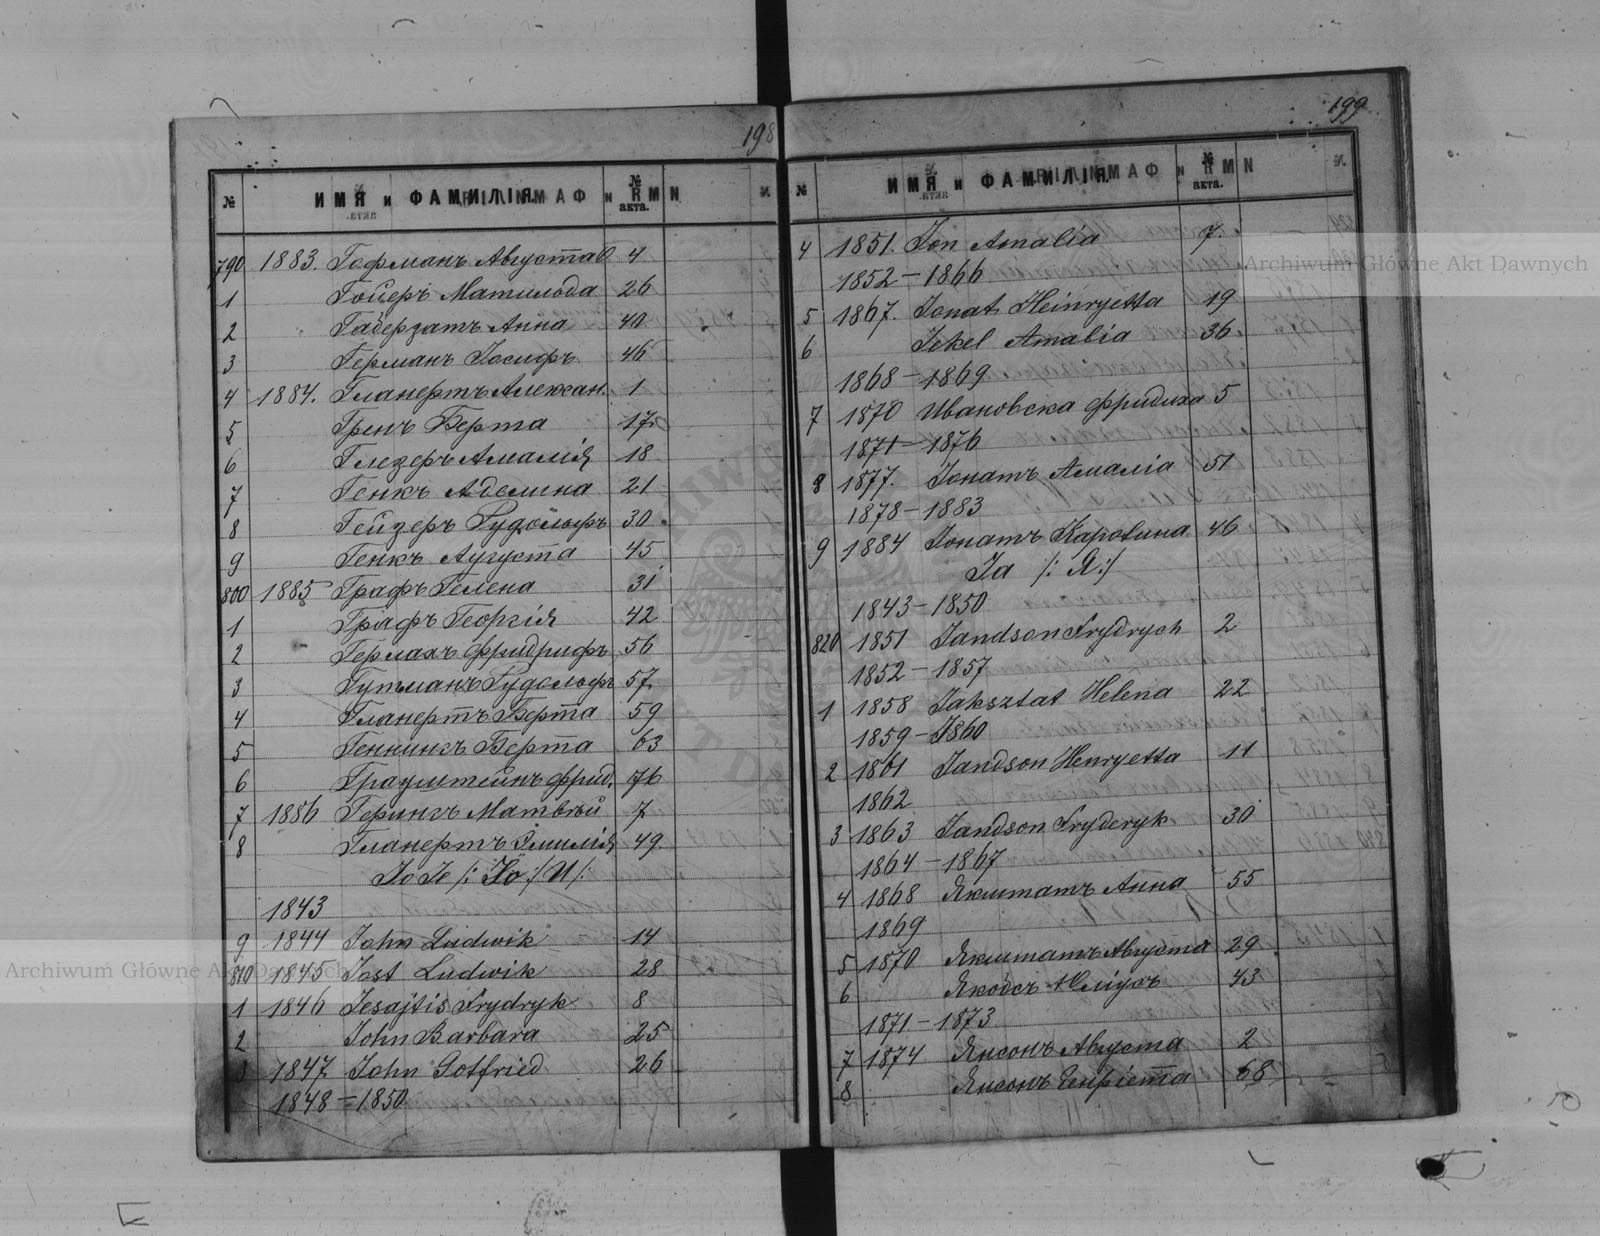 198
№ ИМЯ и ФАМИЛІЯ № акта.
790 1883. Гофманъ Августа 4
1 Гойеръ Матильда 26
2 Габерзатъ Анна 40
3 Германъ Іосифъ 46
4 1884. Гланертъ Алексан. 1
5 Гренъ Берта 17
6 Глезеръ Амалія 18
7 Генкъ Аделина 21
8 Гейзеръ Рудольфъ 30
9 Генкъ Аугуста 45
800 1885 Графъ Гелена 31
1 Графъ Георгія 42
2 Герлахъ Фридрифъ 56
3 Гутманъ Рудольфъ 57
4 Гланертъ Берта 59
5 Геннингъ Берта 63
6 Граумитейнъ Фрид. 76
7 1886 Герингъ Матвѣй 7
8 Гланертъ Эмилія 49
Jo Je /: Іо :/ И /:
1843
9 1844 John Ludwik 14
810 1845 Jost Ludwik 28
1 1846 Jesajtis Frydryk 8
2 John Barbara 25
3 1847 John Gotfried 26
1848 – 1850
199
№ ИМЯ и ФАМИЛІЯ № акта.
4 1851. Jon Amalia 7.
1852 – 1866
5 1867. Jonat Heinryetta 19
6 Jekel Amalia 36
1868 – 1869
7 1870 Ивановска Фридиха 5
1871 – 1876
8 1877. Іонатъ Амалія 51
1878 – 1883
9 1884 Іонатъ Каролина 46
Ja /: Я :/
1843 – 1850
820 1851 Jandson Frydrych 2
1852 – 1857
1 1858 Jaksztat Helena 22
1859 – 1860
2 1861 Jandson Henryetta 11
1862
3 1863 Jandson Fryderyk 30
1864 – 1867
4 1868 Якштатъ Анна 55
1869
5 1870 Якштатъ Августа 29
6 Якобсъ Юліусъ 43
1871 – 1873
7 1874 Янсонъ Августа 2
8 Янсонъ Генріетта 68
Archiwum Główne Akt Dawnych
Archiwum Główne Akt Dawnych